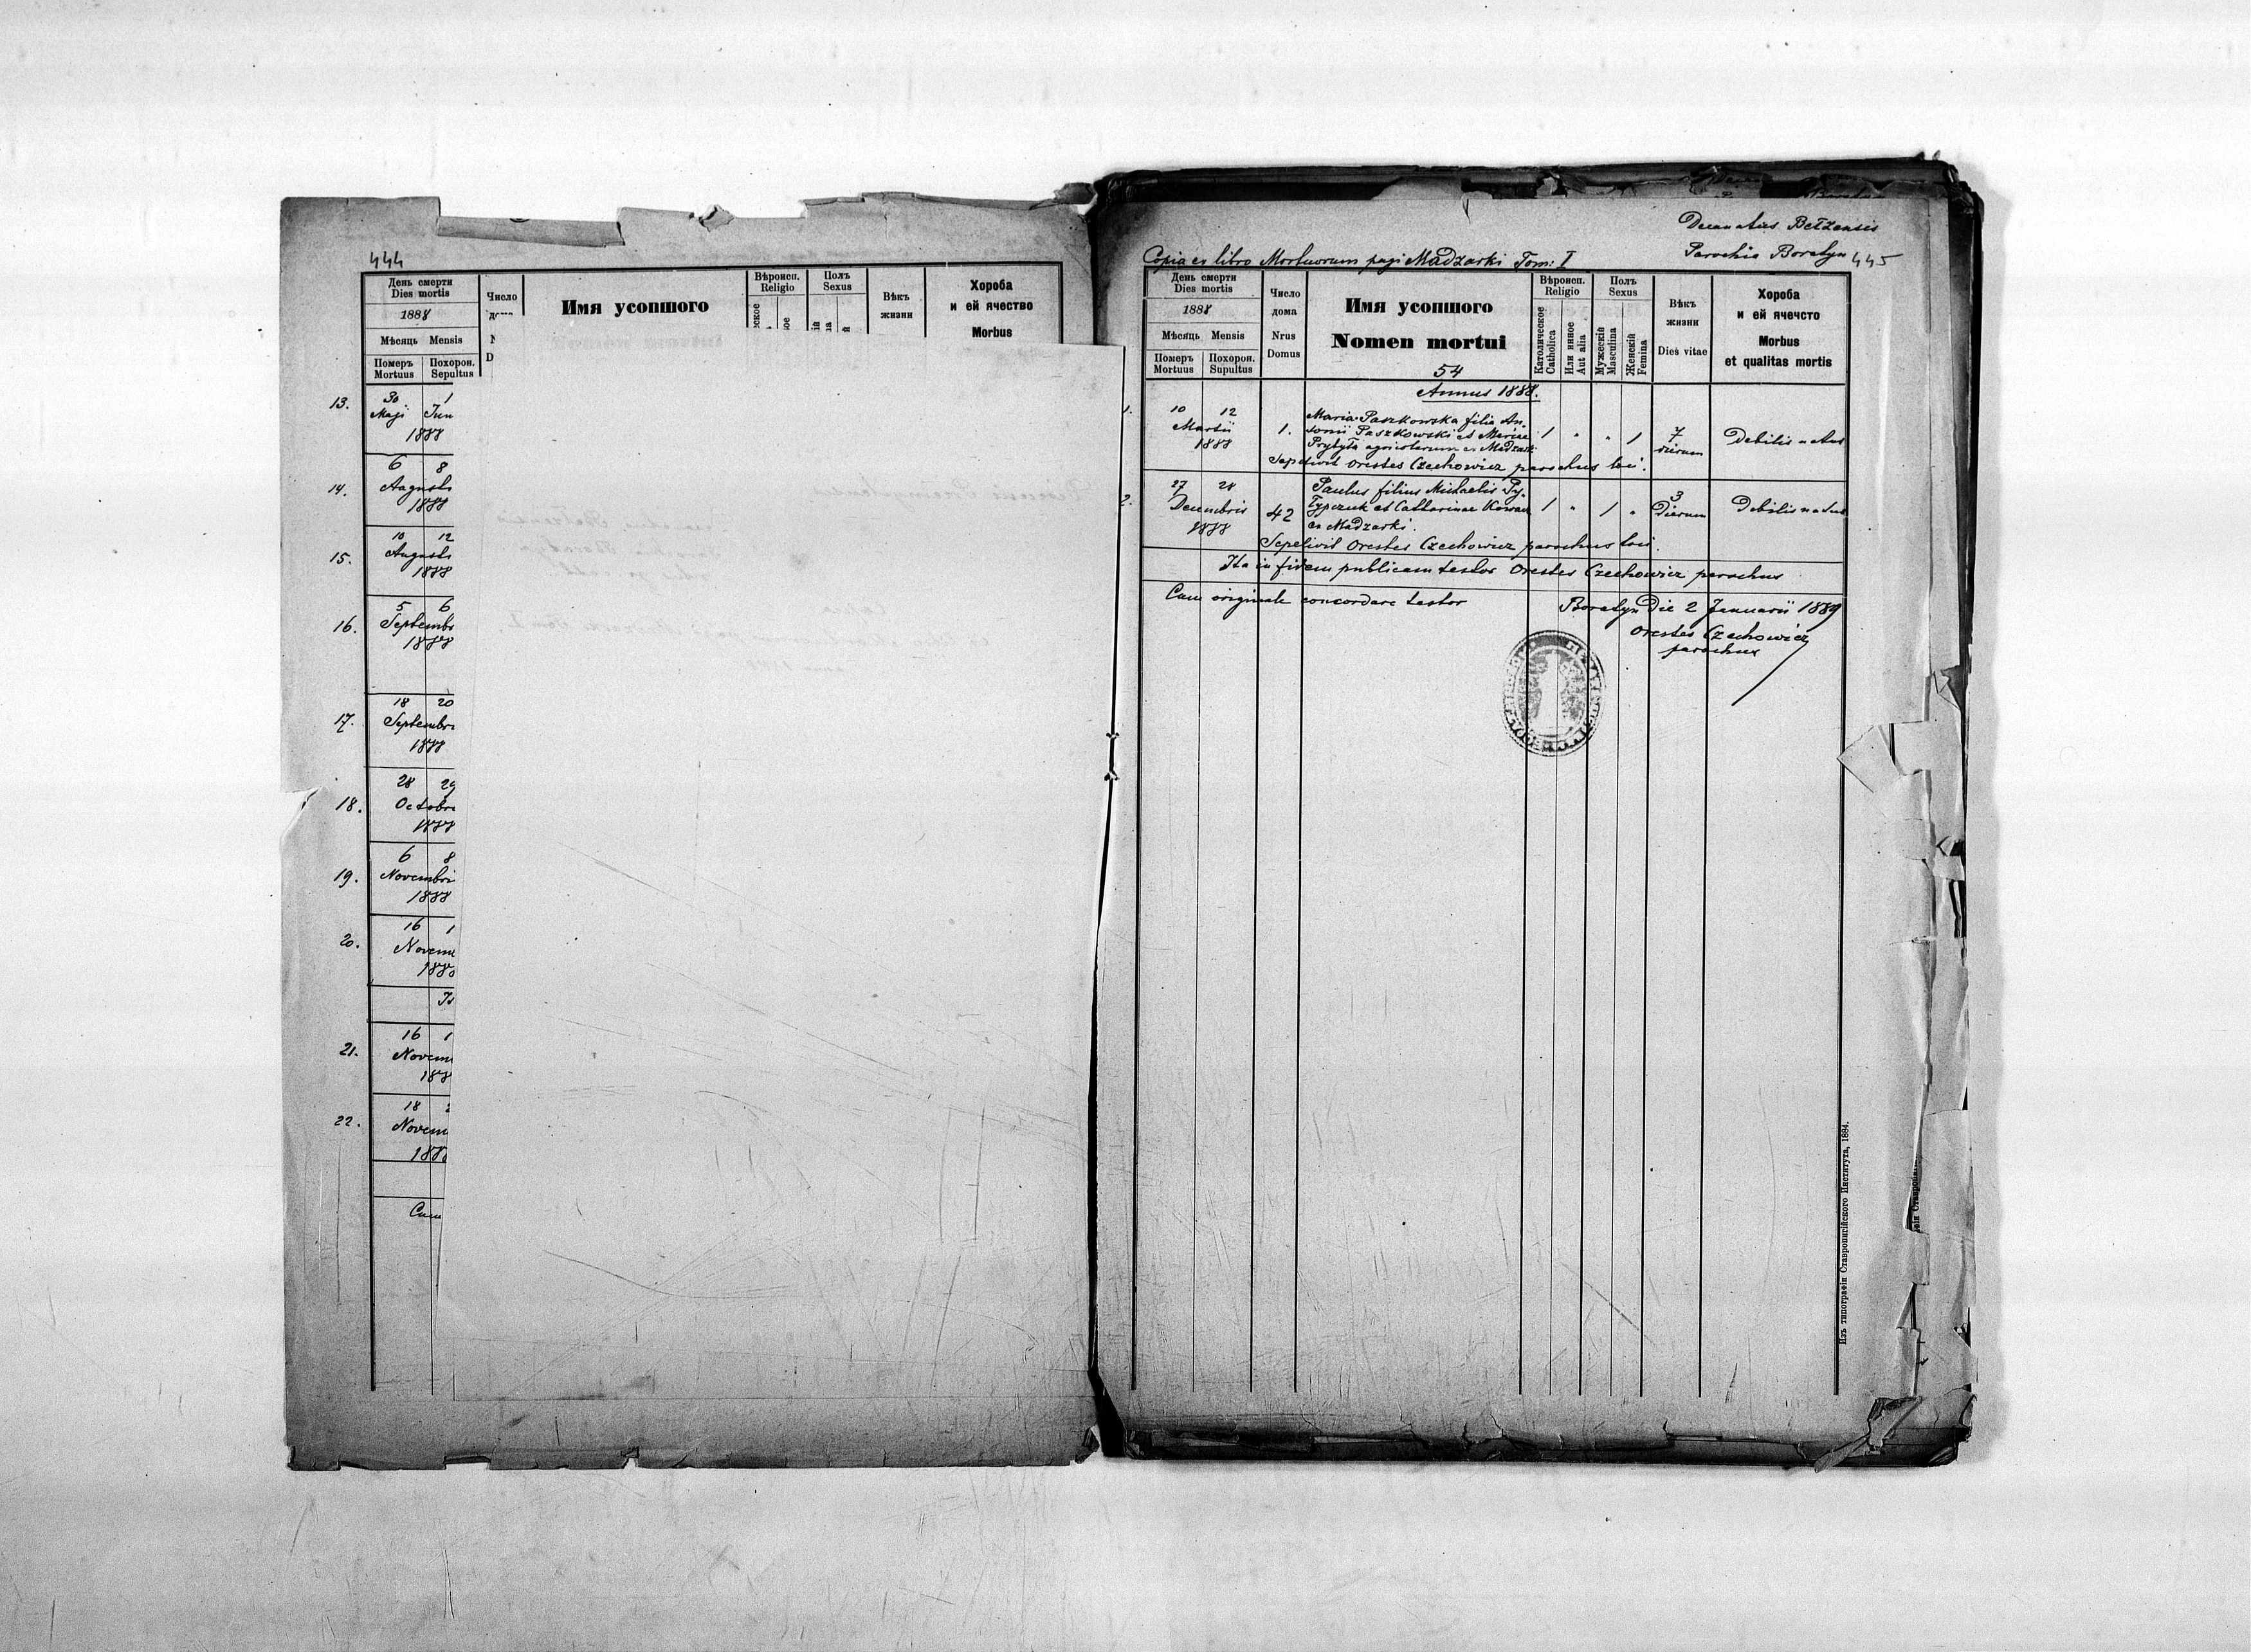 444
День смерти
Dies mortis
1888
Мѣсяць Mensis
Померъ Похорон.
Mortuus Sepultus
Число
Имя усопшого
Вѣроисп.
Religio
Полъ
Sexus
Вѣкъ
жизни
Хороба
и ей ячество
Morbus
13.
30 1
Maji Jun
1888
14.
6 8
Augusti
1888
15.
10 12
Augusti
1888
16.
5 6
Septembr
1888
17.
18 20
Septembr
1888
18.
28 29
Octobr
1888
19.
6 8
Novembri
1888
20.
16 1
Novem
188
21.
16 1
Novem
188
22.
18
Novem
188
Cum
Decanatus Bełzensis
Parochia Boratyn 445
Copia ex libro Mortuorum pagi Madzarki Tom: I
День смерти
Dies mortis
1888
Мѣсяць Mensis
Померъ Похорон.
Mortuus Supultus
Число
дома
Nrus
Domus
Имя усопшого
Nomen mortui
54
Вѣроисп.
Religio
Католическое
Catholica
Или инное
Aut alia
Полъ
Sexus
Мужескій
Masculina
Женскій
Femina
Вѣкъ
жизни
Dies vitae
Хороба
и ей ячечсто
Morbus
et qualitas mortis
Annus 1888.
1.
10 12
Martii
1888
1.
Maria Paszkowska filia An-
tonii Paszkowski et Mariae
Prytyła agricolarum ex Madzarki
1 " " 1
7
dierum
Debilis natus
Sepelivit Orestes Czechowicz parochus loci.
2.
27 28
Decembris
1888
42
Paulus filius Michaelis Py-
łypczuk et Catharinae Kowal
ex Madzarki.
1 " 1 "
3
Dierum
Debilis natus
Sepelivit Orestes Czechowicz parochus loci.
Ita in fidem publicam testor Orestes Czechowicz parochus
Cum originale concordare testor
Boratyn Die 2 Januarii 1889
Orestes Czechowicz
parochus
Изъ типографіи Ставропигійского Института, 1884.